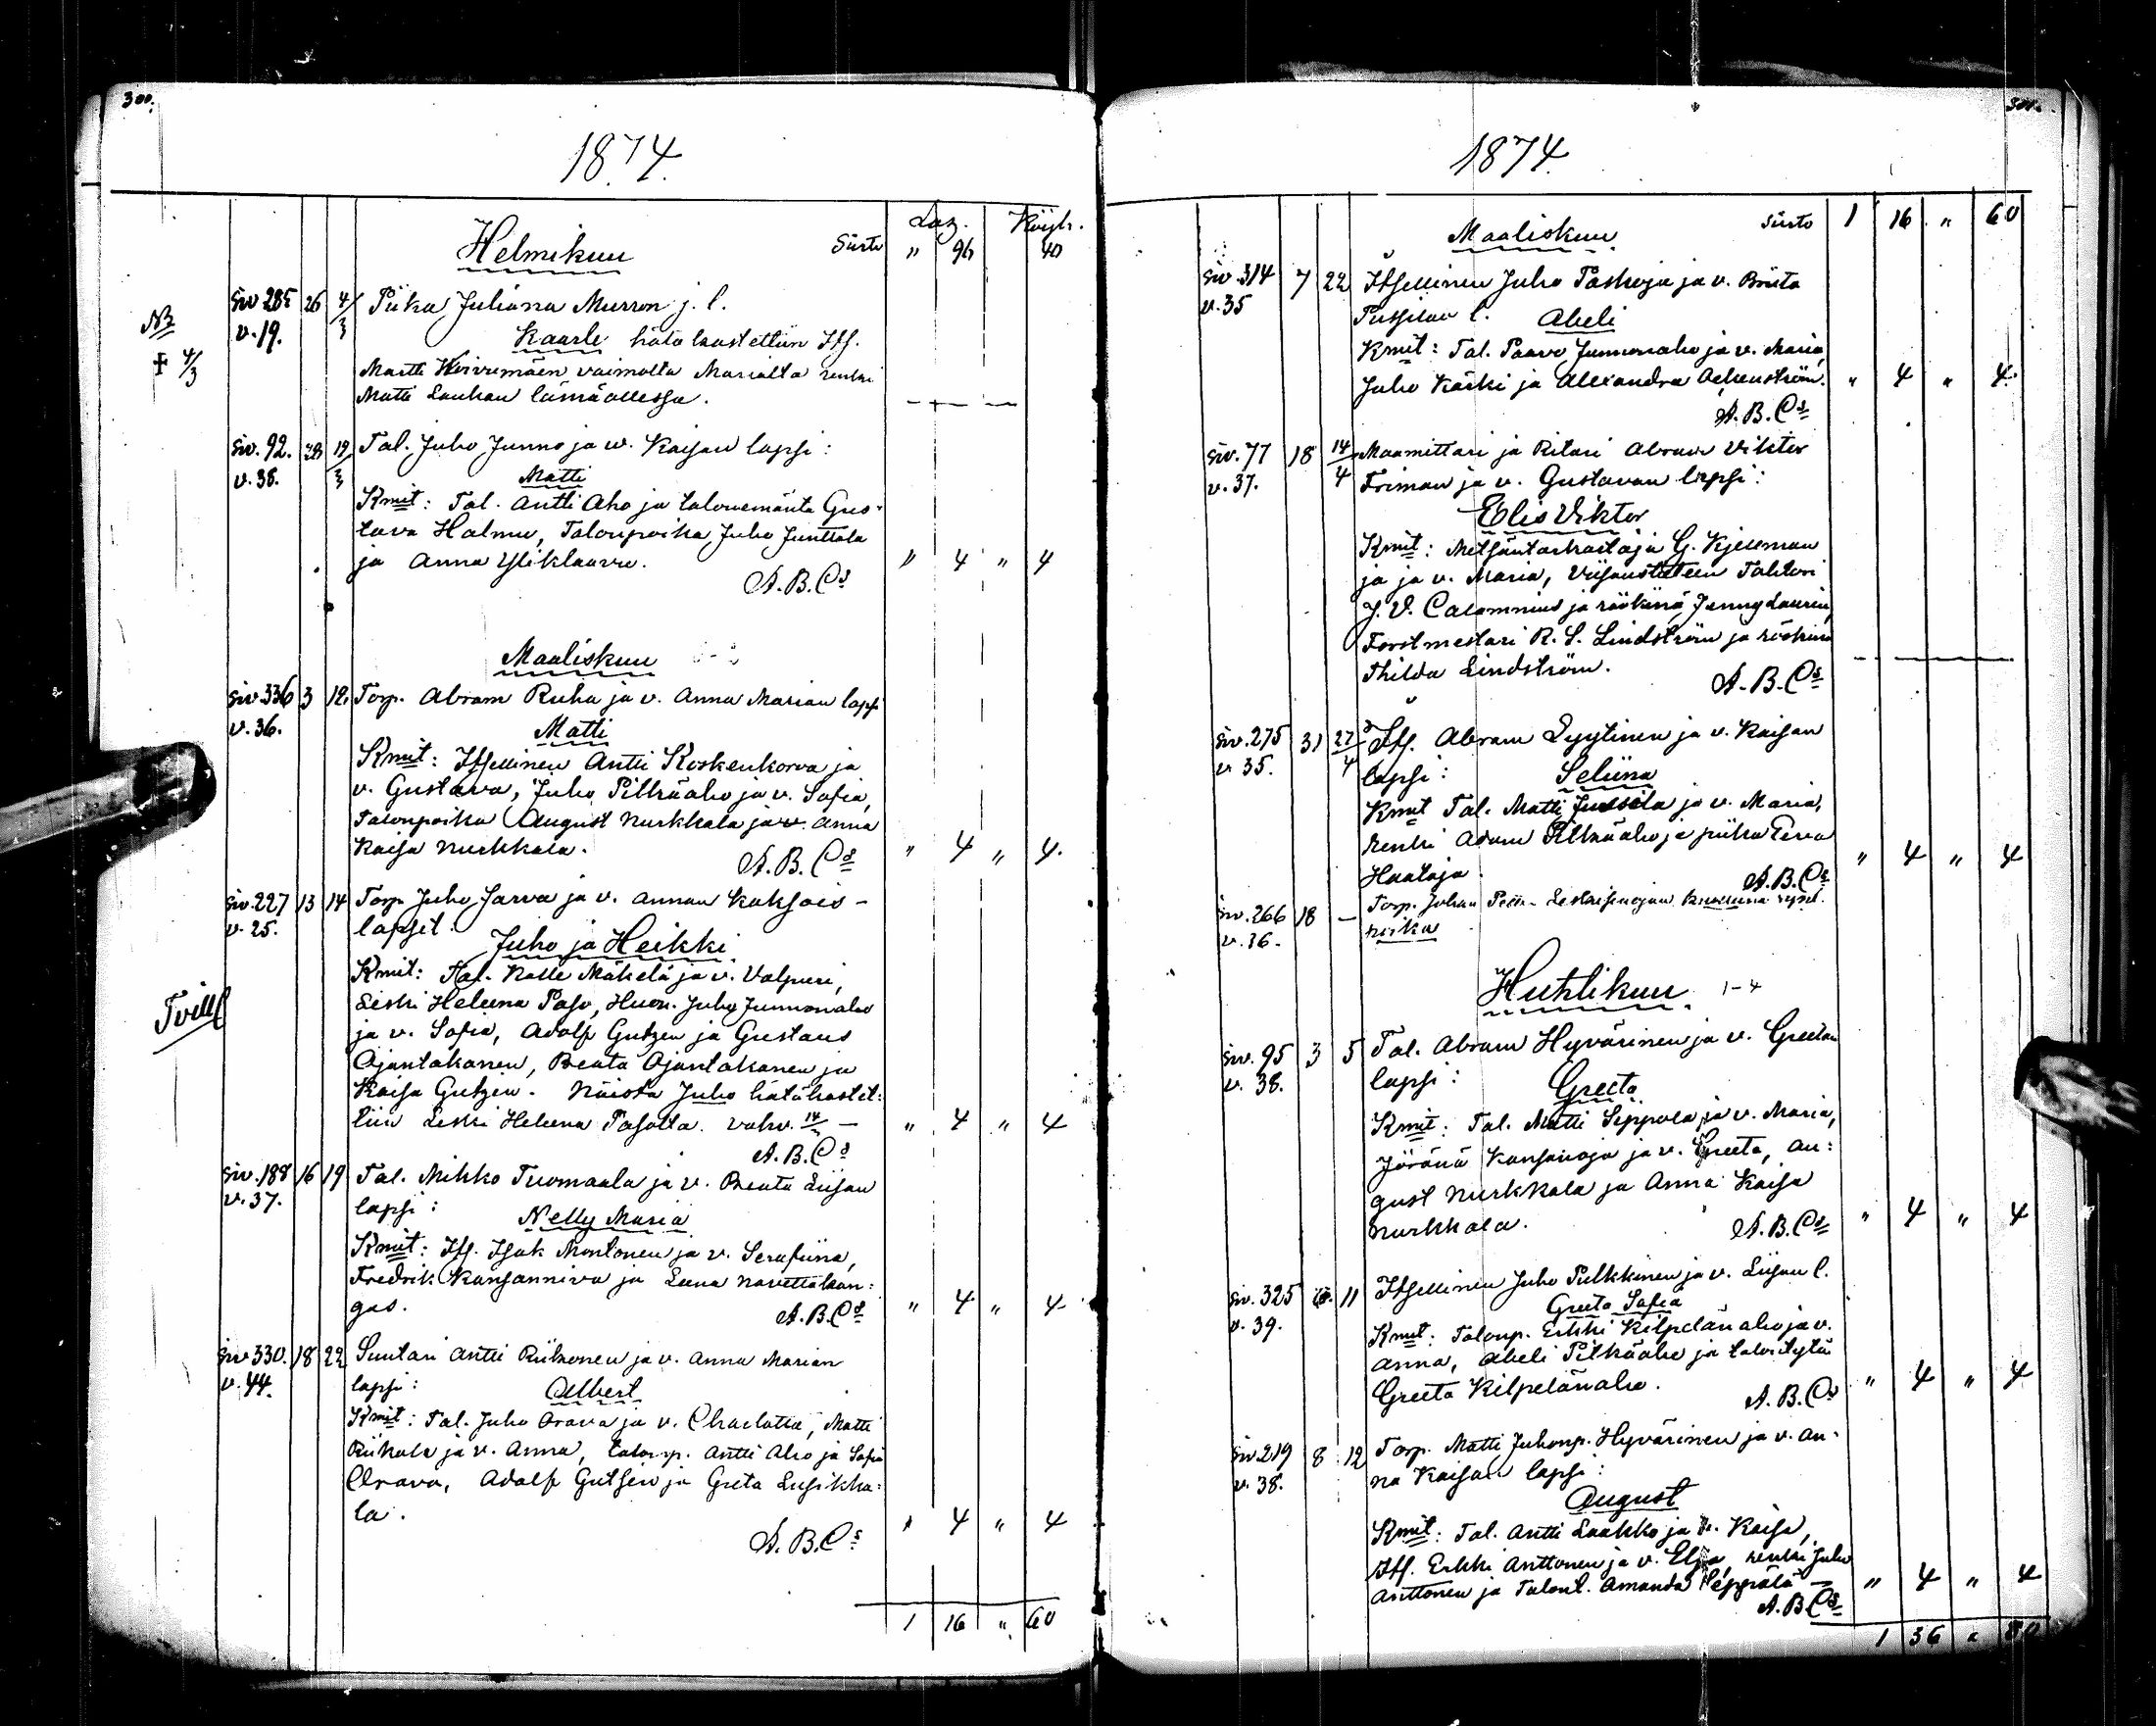 300.
1874.
Laz. Köyh.
Helmikuu Siirto " 96 40
Siv 285 26 4/3 Piika Juliana Murron j. l.
N3 v. 19. Kaarle hätä kastettiin Itß.
† 4/3 Martti Hirvimäen vaimolta Marialta renki
Matti Lauhan läsnäollessa. — — —
Siv. 92. 28 19/3 Tal. Juho Junno ja w. Kaisan lapsi:
v. 38. Matti
Kmit: Tal. Antti Aho ja talonemäntä Gus-
tava Halmu, Talonpoika Juho Junttala
ja Anna Yliklaavu. " 4 " 4
A. B. Cs
Maaliskuu
Siv. 336 3 12. Torp. Abram Ruha ja v. Anna Marian lapsi
v. 36. Matti
Kmit: Itsellinen Antti Koskenkorva ja
v. Gustava, Juho Pitkäaho ja v. Sofia,
Talonpoika August Nurkkala ja v. Anna
Kaisa Nurkkala. " 4 " 4.
A. B. Cs
Siv. 227 13 14 Torp. Juho Jarva ja v. Annan kaksois-
v. 25. lapsit.
Juho ja Heikki
Kmit: Tal. Kalle Mäkelä ja v. Valpuri,
Tvill Leski Heleena Paso, Huon. Juho Junnonaho
ja v. Sofia, Adolf Gutzen ja Gustaus
Ajantakanen, Beata Ajantakanen ja
Kaisa Gutzen. Näistä Juho hätäkastet-
tiin Leski Heleena Pasolta. vahv. 14/3 — " 4 " 4
A. B. Cs
Siv. 188 16 19 Tal. Mikko Tuomaala ja v. Beata Liisan
v. 37. lapsi:
Nelly Maria
Kmit: Itß. Isak Montonen ja v. Serafiina,
Fredrik Kansanniva ja Leena Navettakan:
gas. A. B. Cs " 4 " 4
Siv 330. 18 22 Suutari Antti Riikonen ja v. Anna Marian
v. 44. lapsi: Albert
Kmit: Tal. Juho Orava ja v. Charlotta, Matti
Riikola ja v. Anna, talonp. Antti Aho ja Sofia
Orava, Adolf Gutsen ja Greta Lusikka:
la. " 4 " 4
A. B. Cs
1 16 " 60
301.
1874
Maaliskuu Siirto 1 16 " 60
Siv. 314 7 22 Itsellinen Juho Paskoja ja v. Briita
v. 35 l. Abeli
Kmit: Tal. Paavo Junnonaho ja v. Maria,
Juho Kärki ja Alexandra " 4 " 4.
A. B. Cs
Siv. 77 18 14/4 Maamittari ja Ritari Abram Viktor
v. 37. Friman ja v. Gustavan lapsi:
Elis Viktor
Kmit: Metsäntarkastaja G. Kjellman
ja ja v. Maria, Viisaustieteen Tohtori
J. V. Calamnius ja röökinä Jenny Laurin,
Forstmestari R. S. Lindström ja röökinä
Thilda Lindström. — — —
A. B. Cs
Siv. 275 31 27/4 Itß. Abram Lyytinen ja v. Kaisan
v 35. lapsi: Seliina
Kmit Tal. Matti Jussila ja v. Maria,
renki Adam Pitkäaho ja piika
Haataja. " 4 " 4
A. B. Cs
Siv. 266 18 — Torp. Johan kuolluna synt.
v. 36. poika
Huhtikuu 1-4
Siv. 95 3 5 Tal. Abram Hyvärinen ja v. Greetan
v. 38. lapsi: Greeta
Kmit: Tal. Matti Seppola ja v. Maria,
Jöränä Kansanoja ja v. Greeta, Au:
gust Nurkkala ja Anna Kaisa
Nurkkala. A. B. Cs " 4 " 4
Siv. 325 11 Itsellinen Juho Pulkkinen ja v. Liisan l.
v. 39. Greeta Sofia
Kmit: Talonp. Erkki Kilpelänaho ja v.
Anna, Abeli Pitkäaho ja talontytär
Greeta Kilpelänaho. A. B. Cs " 4 " 4
Siv 219 8 12 Torp. Matti Juhonp. Hyvärinen ja v. An-
v. 38. na Kaisan lapsi:
August
Kmit: Tal. Antti Laakko ja v. Kaisa,
Itß. Erkki Anttonen ja v. Elsa, renki Juho
Anttonen ja Talont. Amanda Seppälä — " 4 " 4
A. B. Cs
1 36 " 80